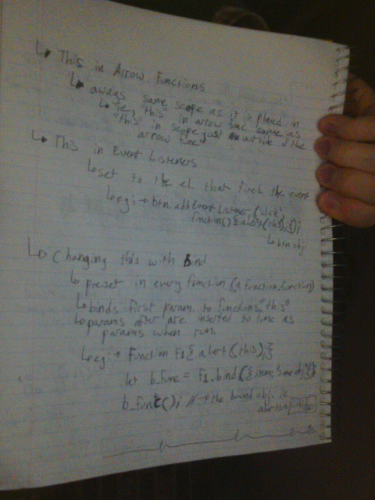 ↳ This in Arrow Functions
↳ always same scope as it is placed in
↳ "this" in arrow func same as
"this" in scope just outside of the
arrow func
↳ This in Event Listeners
↳ set to the el that fired the event
↳ eg: → btn.addEventListener("click",
function(){alert(this);});
↳ btn obj
↳ Changing this with bind
↳ preset in every function (a function.function)
↳ binds first param. to functions "this"
↳ params after are inserted to func as
params when run
↳ eg: → Function F1{alert(this);}
let b_func = F1.bind({item:
b_func(); // → the bound obj. is